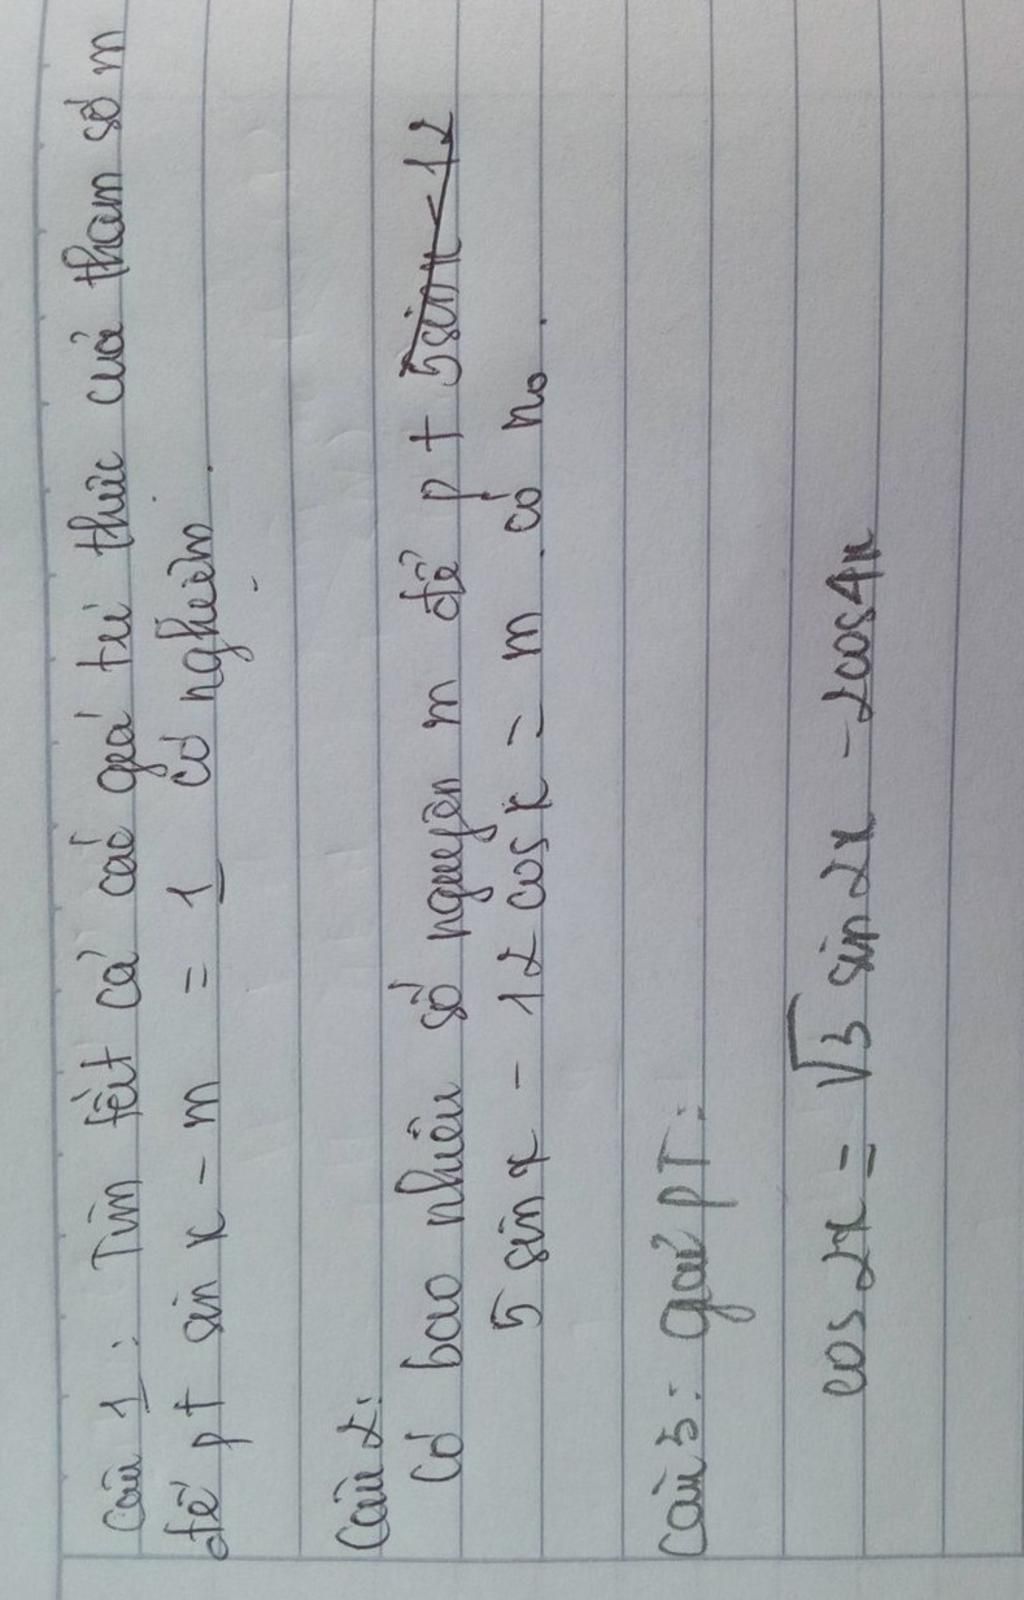 Câu 1 : Tìm tất cả các giá trị thức của tham số m
để pt sin x - m = 1 có nghiệm.
Câu 2:
Có bao nhiêu số nguyên m để pt 5 sin x - 12
5 sin x - 12 cos x = m có no.
Câu 3: giải PT:
cos 2x = √3 sin 2x - 2cos4x